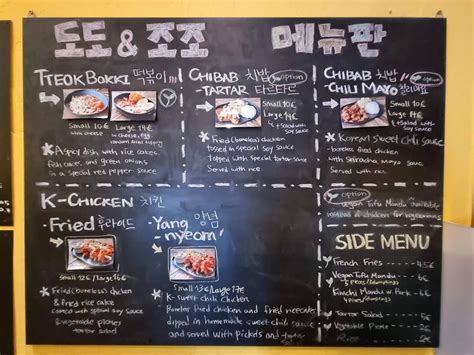 도도 & 조조 메뉴판
TTEOKBOKKI 떡볶이
Small 10€
Large 14€
* A spicy dish with rice cakes,
fish cakes, and green onions
in a special red pepper sauce
CHIBAB 치밥
option
-TARTAR 타르타르
Small 10€
Large 14€
+ Salad with
Soy Sauce
* Fried (boneless) chicken
tossed in special Soy Sauce
Topped with special Tartar Sauce
Served with rice.
CHIBAB 치밥
option
-CHILI MAYO
Small 10€
Large 14€
+ Salad with
Soy Sauce
* Korean sweet chili sauce
- boneless fried chicken
with sriracha mayo Sauce.
Served with rice.
K-CHICKEN 치킨
-Fried 후라이드
Small 12€ / Large 16€
* Fried (boneless) chicken
& fried rice cake
coated with special Soy Sauce
& vegetable pickles
tartar Salad
-Yang 양념
nyeom
Small 13€ / Large 17€
* K-super chili chicken
Boneless fried chicken and fried ricecake
dipped in homemade sweet chili sauce
and served with pickels and tartar
option
Vegan Tofu Mandu available
instead of chicken for vegetarians
SIDE MENU
French Fries
Vegan Tofu Mandu
Kimchi Mandu w. Pork
Tartar Salad
Vegetable Pickle 2€
Rice